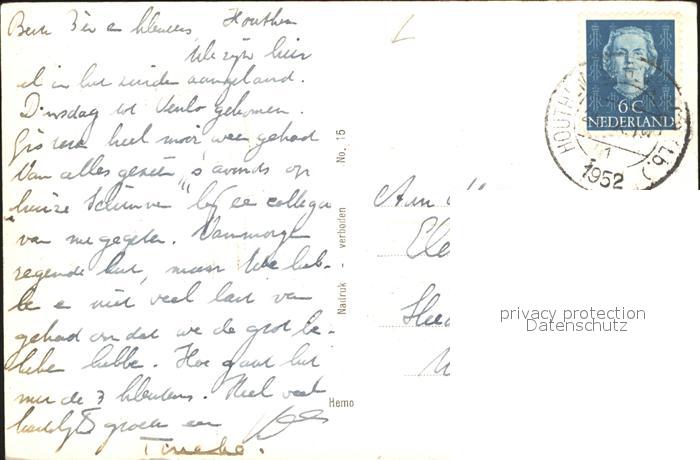 Houthem
We zijn hier
al in het zuiden aangeland.
Dinsdag tot Venlo gekomen.
Gisteren heel mooi weer gehad
Van alles gezien, 's avonds op
huize bij een collega
van me gegeten. Vanmorgen
regende het, maar We heb-
be er niet veel last van
gehad omdat we de grot be-
keken hebbe. Hoe gaat het
met de 3 kleuters. Heel veel
hartelijke groeten van
Tineke.
No. 15
verboden
Nadruk
Hemo
6 C
NEDERLAND
HOUTHEM
1952
Aan
privacy protection
Datenschutz